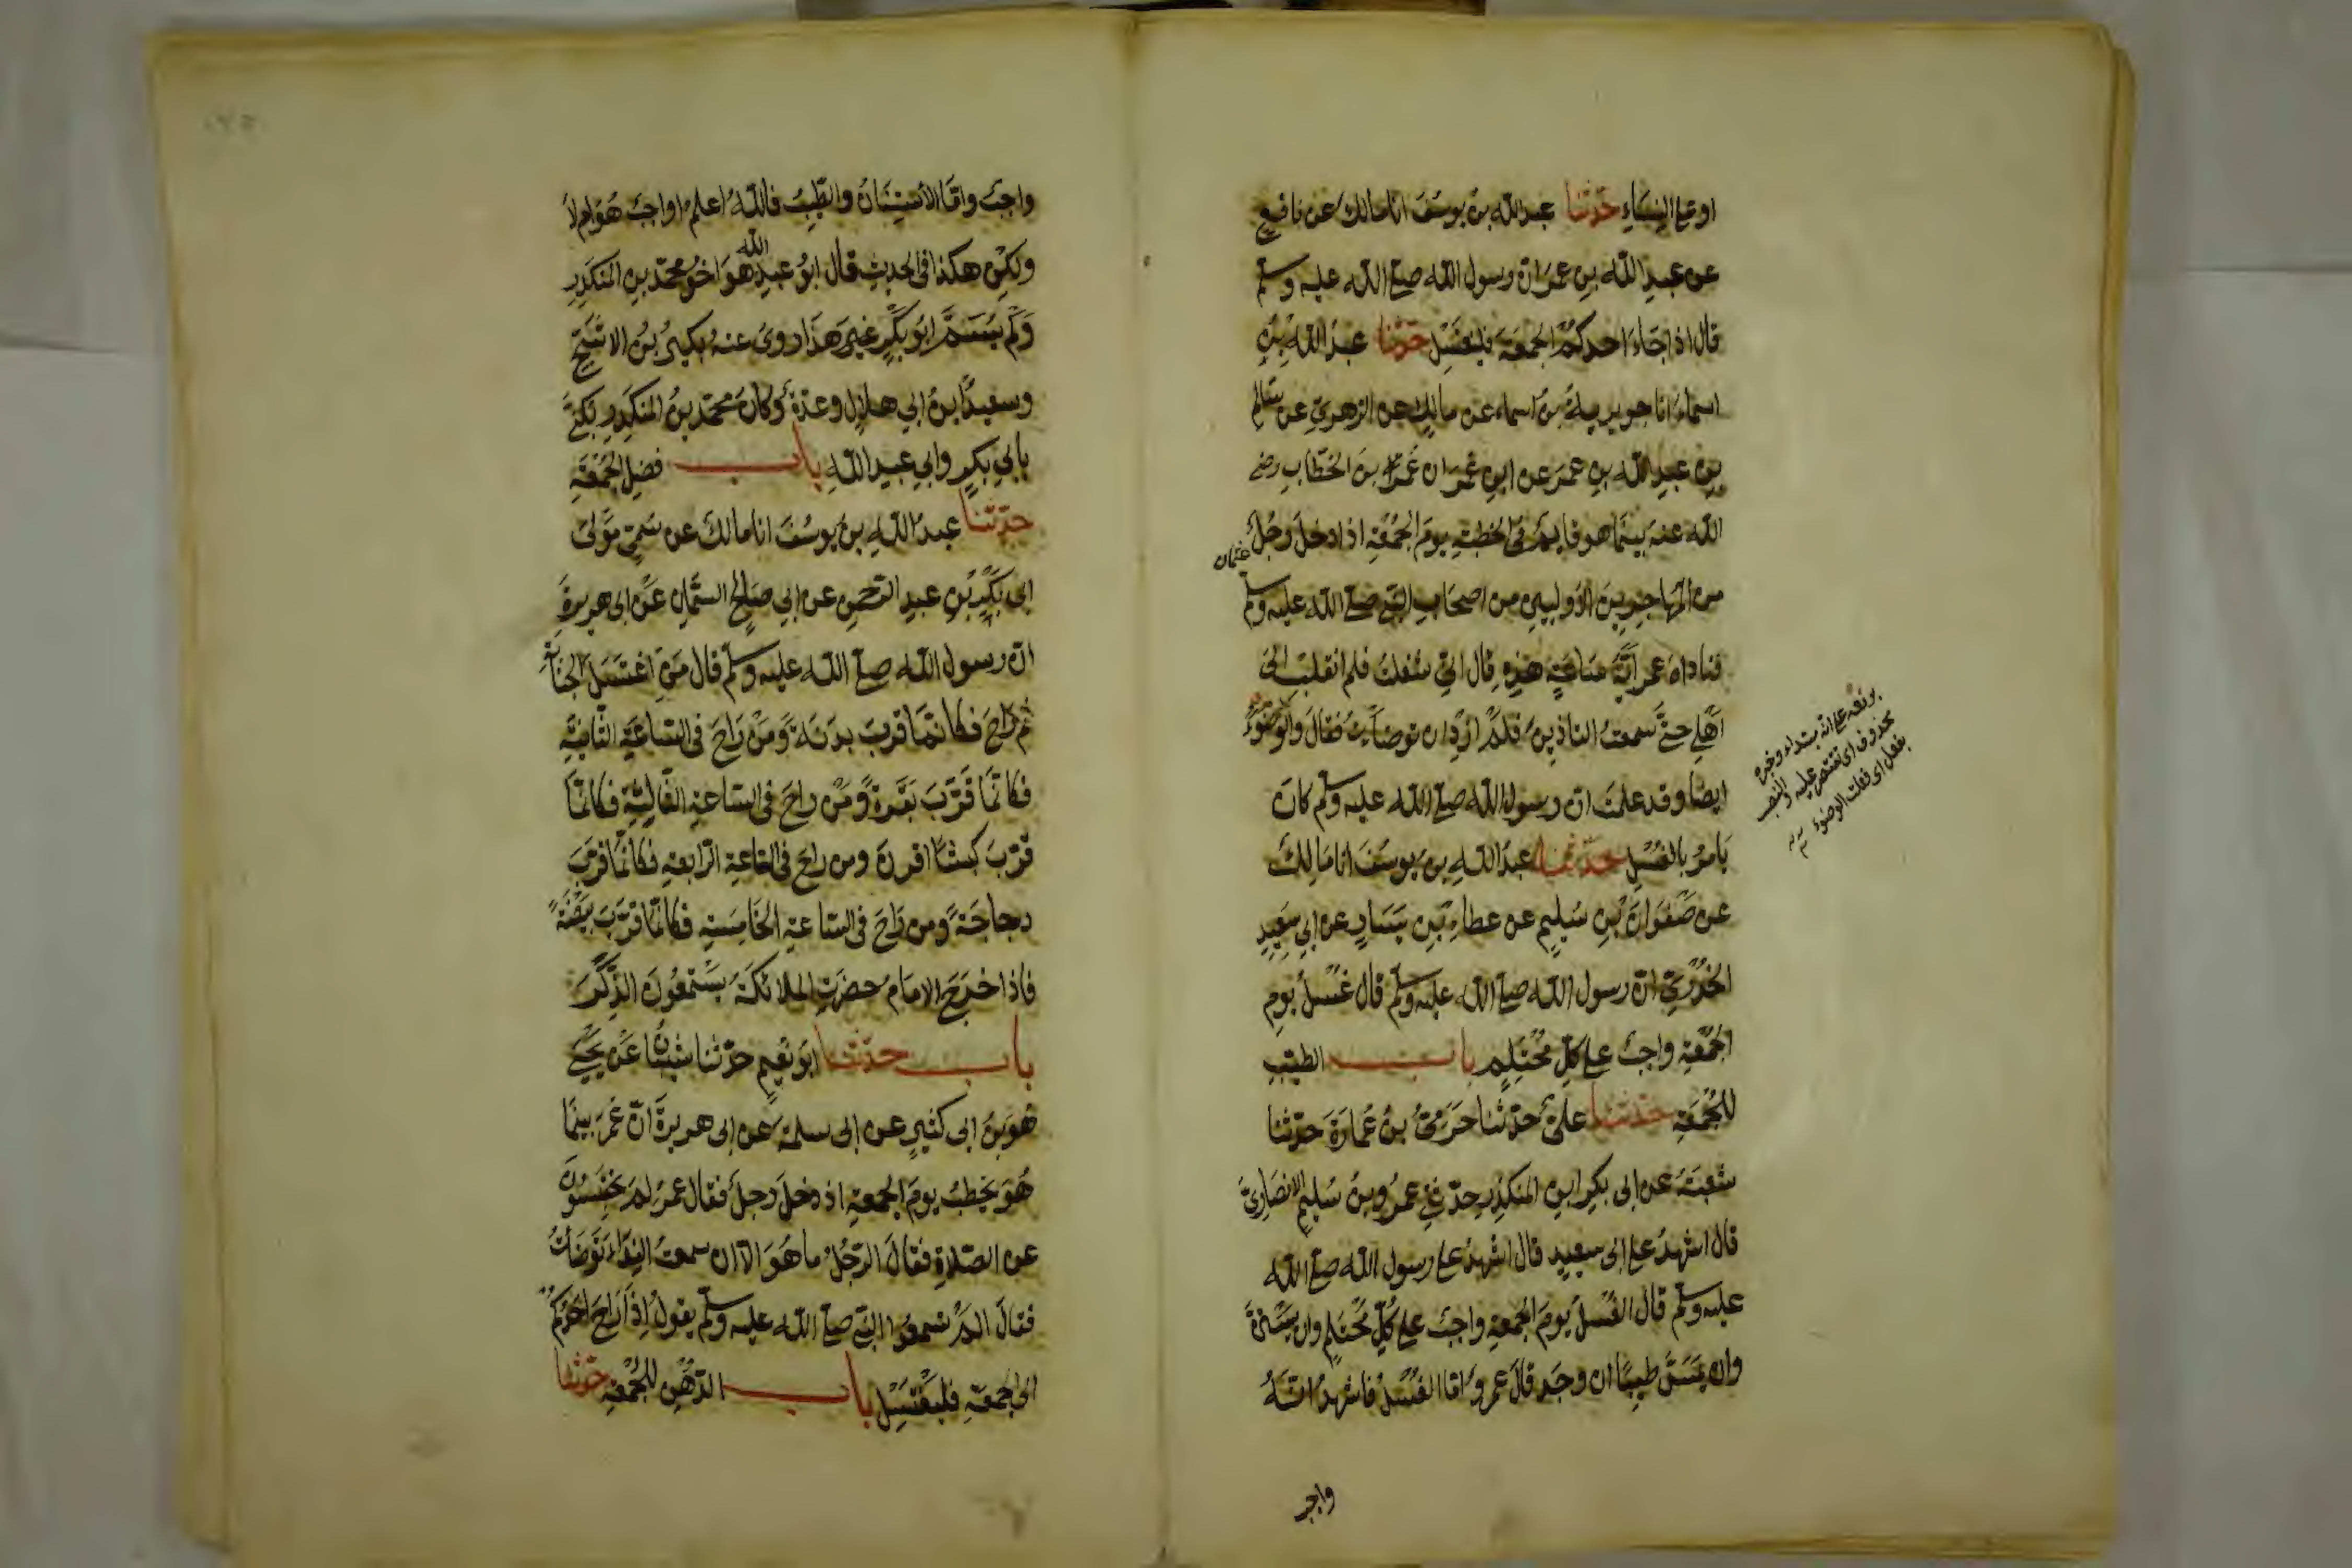 او على النساء حدثنا عبد الله بن يوسف انا مالك عن نافع
عن عبد الله بن عمر ان رسول الله صلى الله عليه وسلم
قال اذا جاء احدكم الجمعة فليغتسل حدثنا عبد الله بن
اسماء انا جويرية بن اسماء عن مالك عن الزهري عن سالم
بن عبد الله بن عمر عن ابن عمر ان عمر بن الخطاب رضي
الله عنه بينما هو قايم في الخطبة يوم الجمعة اذا دخل رجل
عثمان
من المهاجرين الاولين من اصحاب النبي صلى الله عليه وسلم
فناداه عمر اية ساعة هذه قال اني شغلت فلم انقلب الى
اهلي حتى سمعت التاذين فلم ازد ان توضات فقال والوضوء
ايضا وقد علمت ان رسول الله صلى الله عليه وسلم كان
يامر بالغسل حدثنا عبد الله بن يوسف انا مالك
عن صفوان بن سليم عن عطاء بن يسار عن ابي سعيد
الخدري ان رسول الله صلى الله عليه وسلم قال غسل يوم
الجمعة واجب على كل محتلم باب الطيب
للجمعة حدثنا علي حدثنا حرمي بن عمارة حدثنا
شعبة عن ابى بكر ابن المنكدر حدثني عمرو بن سليم الانصاري
قال اشهد على ابى سعيد قال اشهد على رسول الله صلى الله
عليه وسلم قال الغسل يوم الجمعة واجب على كل محتلم وان يستن
وان يمس طيبا ان وجد قال عمرو اما الغسل فاشهد انه
برفعه على انه مبتداء وخبره
محذوف اى تقتصر عليه والنصب
بفعل اى فعلت الوضوء
واجب
واجب واما الاستنان والطيب فالله اعلم اواجب هو ام لا
ولكن هكذا في الحديث قال ابو عبد الله هو اخو محمد بن المنكدر
ولم يسم ابو بكر غير هذا روى عنه بكير بن الاشج
وسعيد ابن ابي هلال وعدة وكان محمد بن المنكدر يكنى
بابي بكر وابي عبد الله باب فضل الجمعة
حدثنا عبد الله بن يوسف انا مالك عن سمي مولى
ابى بكر بن عبد الرحمن عن ابي صالح السمان عن ابى هريرة
ان رسول الله صلى الله عليه وسلم قال من اغتسل الجنابة
ثم راح فكانما قرب بدنة ومن راح في الساعة الثانية
فكانما قرب بقرة ومن راح في الساعة الثالثة فكانما
قرب كبشا اقرن ومن راح في الساعة الرابعة فكانما قرب
دجاجة ومن راح في الساعة الخامسة فكانما قرب بيضة
فاذا خرج الامام حضرت الملائكة يستمعون الذكر
باب حدثنا ابو نعيم حدثنا شيبان عن يحيى
هو بن ابى كثير عن ابى سلمة عن ابى هريرة ان عمر بينما
هو يخطب يوم الجمعة اذ دخل رجل فقال عمر لم تحتبسون
عن الصلاة فقال الرجل ما هو الا ان سمعت النداء توضات
فقال الم تسمعوا النبي صلى الله عليه وسلم يقول اذا راح احدكم
الى الجمعة فليغتسل باب الدهن للجمعة حدثنا